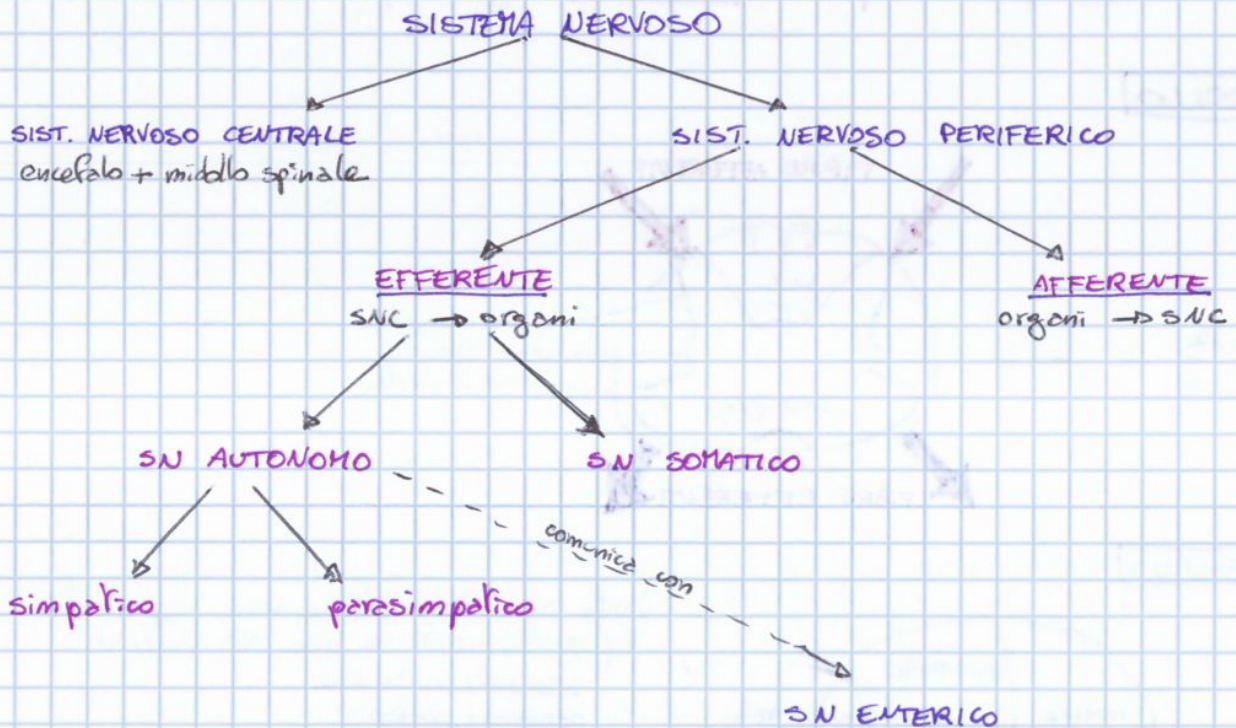 SISTEMA NERVOSO
SIST. NERVOSO CENTRALE
encefalo + midollo spinale
SIST. NERVOSO PERIFERICO
EFFERENTE
SNC → organi
AFFERENTE
organi → SNC
SN AUTONOMO
SN SOMATICO
comunica con
simpatico
parasimpatico
SN ENTERICO